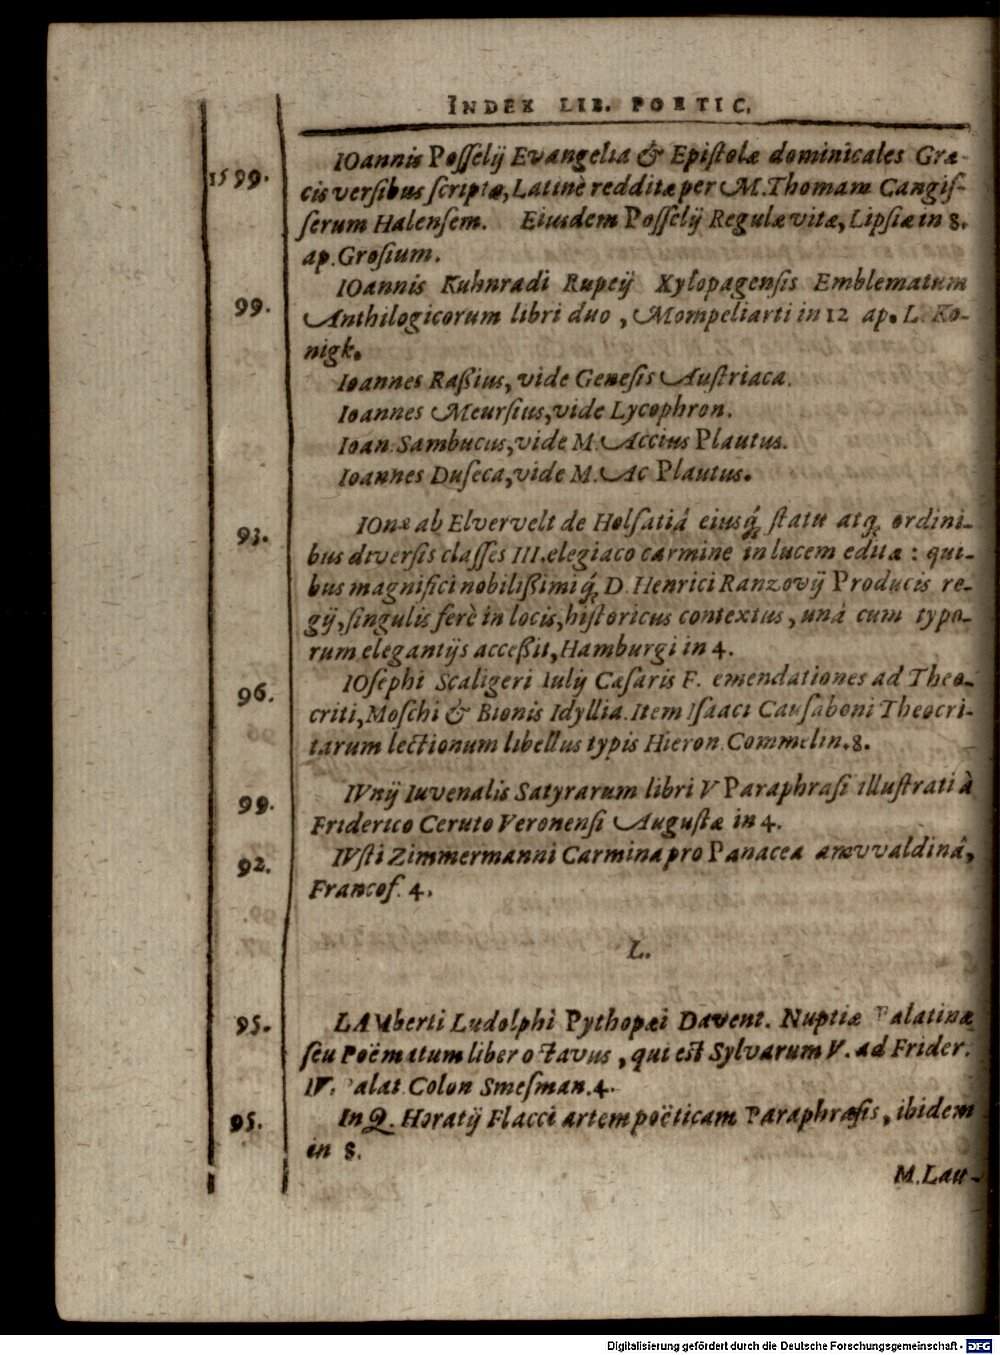 INDEX LIB. POETIC.
1599. IOannis Posselij Evangelia & Epistolæ dominicales Græ-
cis versibus scriptæ, Latinè redditæ per M. Thomam Cangis-
serum Halensem. Eiusdem Posselij Regulæ vitæ, Lipsiæ in 8.
ap. Grosium.
99. IOannis Kuhnradi Rupeij Xylopagensis Emblematum
Anthilogicorum libri duo, Mompeliarti in 12 ap. L. Ko-
nigk.
Ioannes Raßius, vide Genesis Austriaca.
Ioannes Meursius, vide Lycophron.
Ioan. Sambucus, vide M. Accius Plautus.
Ioannes Duseca, vide M. Ac Plautus.
93. IOnæ ab Elvervelt de Holsatiâ eiusq́; statu atq; ordini-
bus diversis classes III. elegiaco carmine in lucem editæ: qui-
bus magnifici nobilißimiq́; D. Henrici Ranzovij Producis re-
gij, singulis ferè in locis, historicus contextus, unà cum typo-
rum elegantijs acceßit, Hamburgi in 4.
96. IOsephi Scaligeri Iulij Cæsaris F. emendationes ad Theo-
criti, Moschi & Bionis Idyllia. Item Isaaci Causaboni Theocri-
tarum lectionum libellus typis Hieron. Commelin. 8.
99. IVnij Iuvenalis Satyrarum libri V Paraphrasi illustrati à
Friderico Ceruto Veronensi Augustæ in 4.
92. IVsti Zimmermanni Carmina pro Panacea amvvaldinâ,
Francof. 4.
L.
95. LAMberti Ludolphi Pythopæi Davent. Nuptiæ Palatinæ
seu Poëmatum liber octavus, qui est Sylvarum V. ad Frider.
IV. Palat. Colon Smesman. 4.
95. In Q. Horatij Flacci artem poëticam Paraphrasis, ibidem
in 8.
M. Lau-
Digitalisierung gefördert durch die Deutsche Forschungsgemeinschaft - DFG